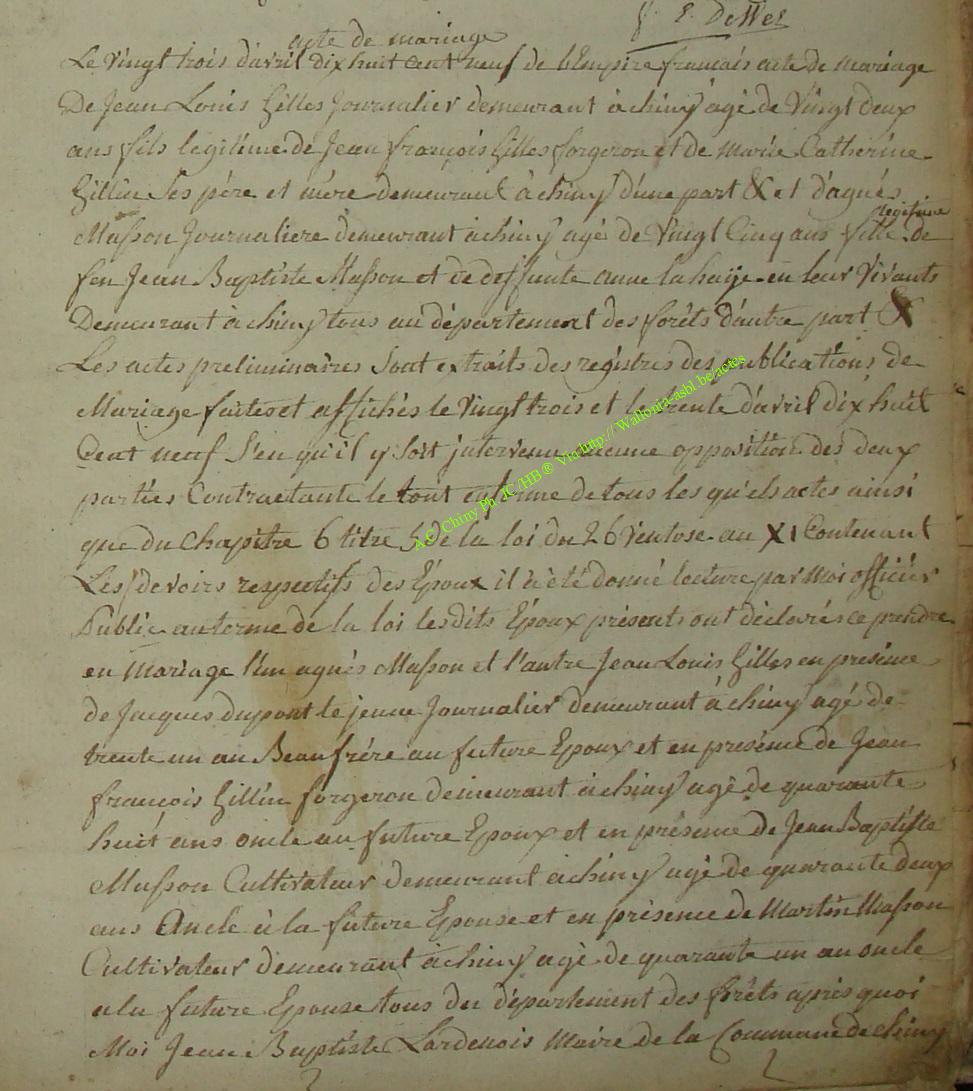 J. E. DeWez
acte de mariage
Le vingt trois d'avril dix huit cent neuf de l'Empire francais acte de mariage
De Jean Louis Gilles Journalier demeurant à chiny agé de vingt deux
ans fils legitime de Jean françois Gilles forgeron et de Marie Catherine
Gillin Ses père et mère demeurant à chiny d'une part & et d'agnés
legitime
Masson Journaliere demeurant à chiny agé de vingt Cinq ans fille de
feu Jean Baptiste Masson et de deffunte anne lahaije en leur vivants
Demeurant à chiny tous au département des forêts d'autre part &
Les actes preliminaires Sont extraits des registres des publications de
Mariage faites et affichés le vingt trois et le trente d'avril dix huit
Cent neuf S'en qu'il y soit intervenu aucune opposition des deux
parties Contractante le tout en forme de tous les qu'els actes ainsi
que du Chapitre 6 titre 5 de la loi du 26 Ventose an XI Contenant
Les devoirs respectifs des Epoux il à été donné lecture par Moi officier
Public au terme de la loi lesdits Epoux présents ont déclarés ce prendre
en Mariage l'un agnés Masson et l'autre Jean Louis Gilles en présence
de Jacques dupont le jeune Journalier demeurant à chiny agé de
trente un an Beau frère au future Epoux et en présence de Jean
françois Gillin forgeron demeurant à chiny agé de quarante
huit ans oncle au future Epoux et en présence de Jean Baptiste
Masson Cultivateur demeurant à chiny agé de quarante deux
ans Oncle à la future Epouse et en présence de Martin Masson
Cultivateur demeurant à chiny agé de quarante un an oncle
a la future Epouse tous du département des forêts après quoi
Moi Jean Baptiste Lardenois Maire de la Commune de Chiny
A.C. Chiny Ph JC/HB ® Via http:// Wallonia-asbl.be/actes